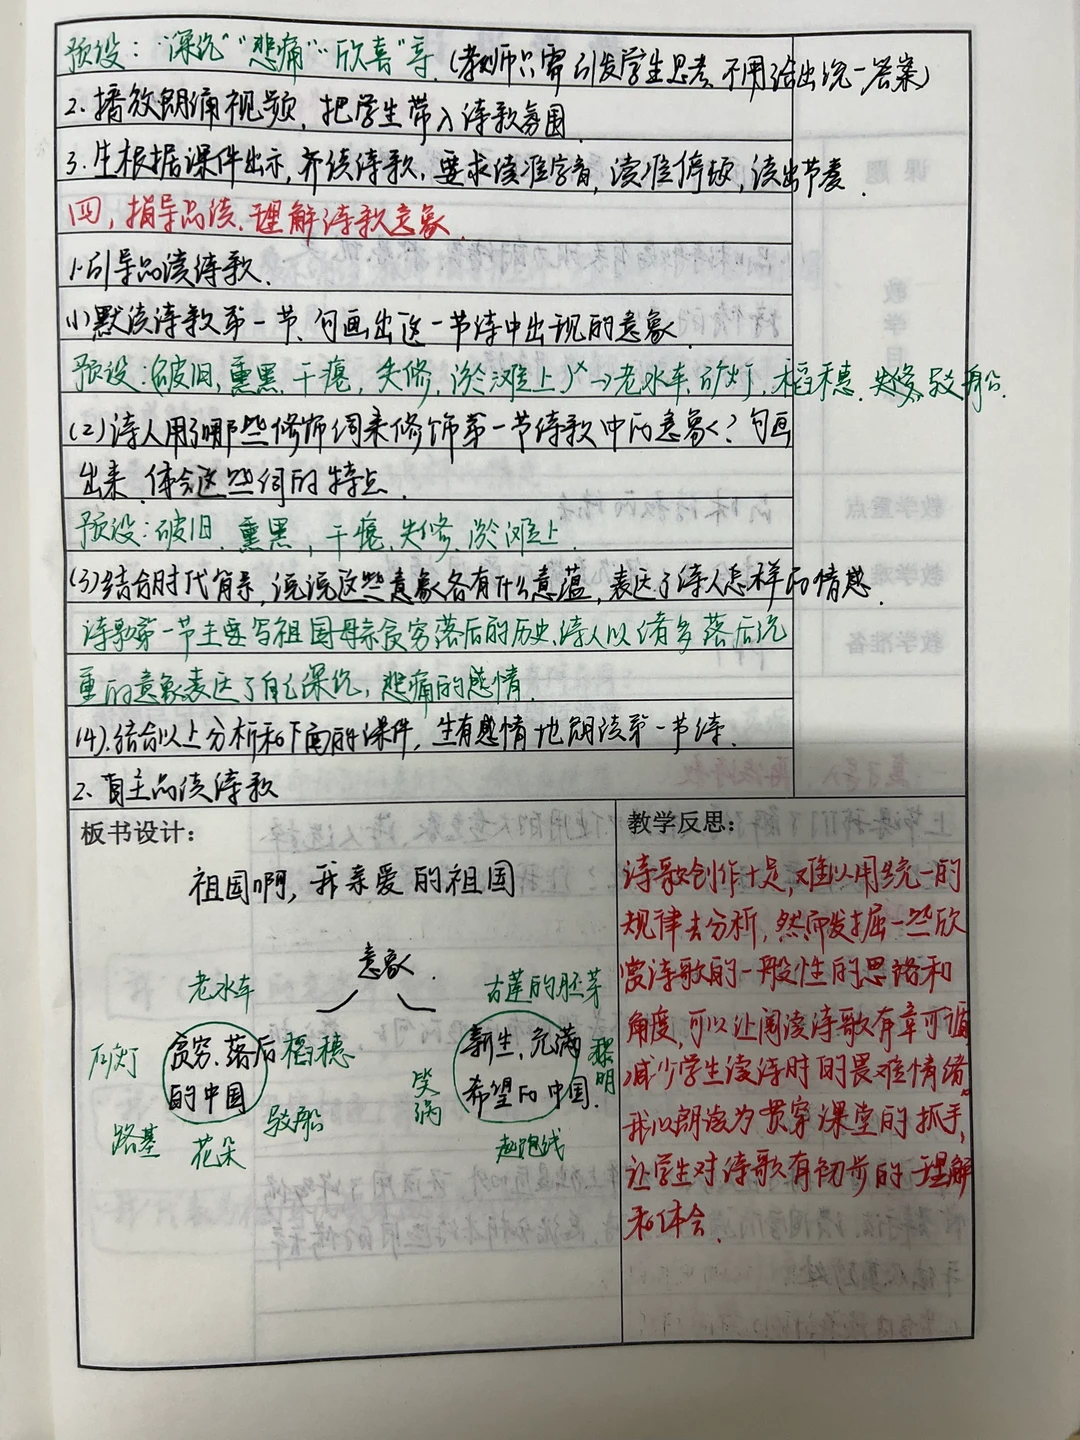 预设：“深沉”“悲痛”“欣喜”等.（教师只需引发学生思考,不用给出统一答案）
2.播放朗诵视频，把学生带入诗歌氛围.
3.生根据课件出示,齐读诗歌,要求读准字音,读准停顿,读出节奏.
四,指导品读.理解诗歌意象
1.引导品读诗歌.
(1)默读诗歌第一节.勾画出这一节诗中出现的意象.
预设:(破旧,熏黑,干瘪,失修,淤滩上)×→老水车.矿灯.稻穗.失修.驳船.
(2)诗人用了哪些修饰词来修饰第一节诗歌中的意象?勾画
出来.体会这些词的特点.
预设:破旧.熏黑,干瘪,失修.淤滩上.
(3)结合时代背景,说说这些意象各有什么意蕴,表达了诗人怎样的情感.
诗歌第一节主要写祖国母亲贫穷落后的历史.诗人以诸多落后沉
重的意象表达了自己深沉,悲痛的感情.
(4).结合以上分析和下面的课件,生有感情地朗读第一节诗.
2.自主品读诗歌
板书设计：
祖国啊,我亲爱的祖国
意象.
老水车
矿灯
贫穷.落后
的中国
稻穗
驳船
路基
花朵
古莲的胚芽
新生.充满
希望的中国.
黎明
笑涡
起跑线
教学反思：
诗歌创作 ,难以用统一的
规律去分析,然而发掘一些欣
赏诗歌的一般性的思路和
角度,可以让阅读诗歌有章可循
,减少学生读诗时的畏难情绪.
我以朗读为贯穿课堂的抓手,
让学生对诗歌有初步的理解
和体会.